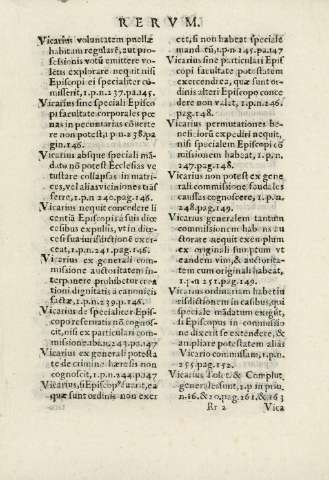 RERVM.
Vicarius voluntatem puellæ
habitam regularé, aut pro-
fessionis votú emittere vo
letis explorare nequit nisi
Episcopi ei specialiter có-
miserit, 1.p.n.237.pa.145.
Vicarius sine speciali Episco
pi facultate corporales pœ
nas in pecuniarias cóuerte
re non potest, 1.p.n.238.pa
gin.146.
Vicarius absque speciali má-
dato nó potest Ecclesias ve
tustate collapsas in matri-
ces, vel alias viciniores trás
ferre, 1.p.n.240.pag.146.
Vicarius nequit concedere li
centiá Episcopi à sui diœ
cesibus expulsis, vt in diœ-
cesi suaiurisdictioné exer-
ceat, 1.p.n.241.pag.146.
Vicarius ex generali com-
missione auctoritatem in-
terponere prohibetur crea
tioni dignitatis à canonicis
factæ, 1.p.n.239.p.146.
Vicarius de specialiter Epis-
copo reseruatis nó cognos-
cit, nisi ex particulari com-
missione.ibi.n.243.pa.147
Vicarius ex generali potesta
te de crimine hæresis non
cognoscit, 1.p.n.244.pa.147
Vicarius, si Episcopus curat, ea
quæ sunt ordinis non exer
cet, si non habeat speciale
mandatú, 1.p.n.145.pa.147
Vicarius sine particulari Epis
copi facultate potestatem
exercendi ea, quæ sunt or-
dinis alteri Episcopo conce
dere non valet, 1.p.n.246.
pag.148.
Vicarius permutationes be-
neficiorú expediri nequit,
nisi specialem Episcopi có
missionem habeat, 1.p.n.
247.pag.148.
Vicarius non potest ex gene
rali commissione feudales
causas cognoscere, 1.p.n.
248.pag.149.
Vicarius generalem tantum
commissionem habens au
ctorare nequit exemplum
ex originali sumptum vt
eandem vim, & auctorita-
tem cum originali habeat,
1.p.n.251.pag.149.
Vicarius ordinariam habet iu
risdictionem in casibus, qui
speciale mádatum exigút,
si Episcopus in commissio
ne dixerit se extendere, &
ampliare potestatem alias
Vicario commissam, 1.p.n.
255.pag.152.
Vicarius Tolet. & Complut.
generales sunt, 1.p in prin.
n.16.& 20.pag.161.& 163
Rr 2 Vica